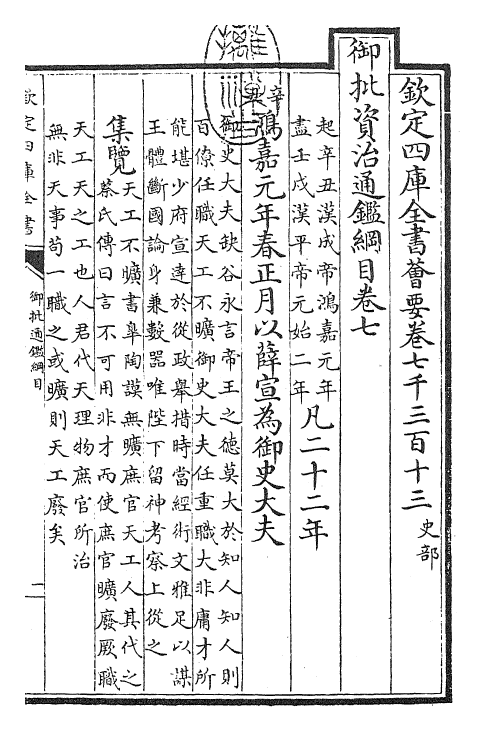 欽定四庫全書薈要卷七千三百十三 史部
御批資治通鑑綱目卷七
起辛丑漢成帝鴻嘉元年
盡壬戌漢平帝元始二年
凡二十二年
辛丑
鴻嘉元年春正月以薛宣為御史大夫
御史大夫缺谷永言帝王之德莫大於知人知人則
百僚任職天工不曠御史大夫任重職大非庸才所
能堪少府宣達於從政舉措時當經術文雅足以謀
王體斷國論身兼數器唯陛下留神考察上從之
集覽
天工不曠書皋陶謨無曠庶官天工人其代之
蔡氏傳曰言不可用非才而使庶官曠廢厥職
天工天之工也人君代天理物庶官所治
無非天事苟一職之或曠則天工廢矣
欽定四庫全書
御批通鑑綱目